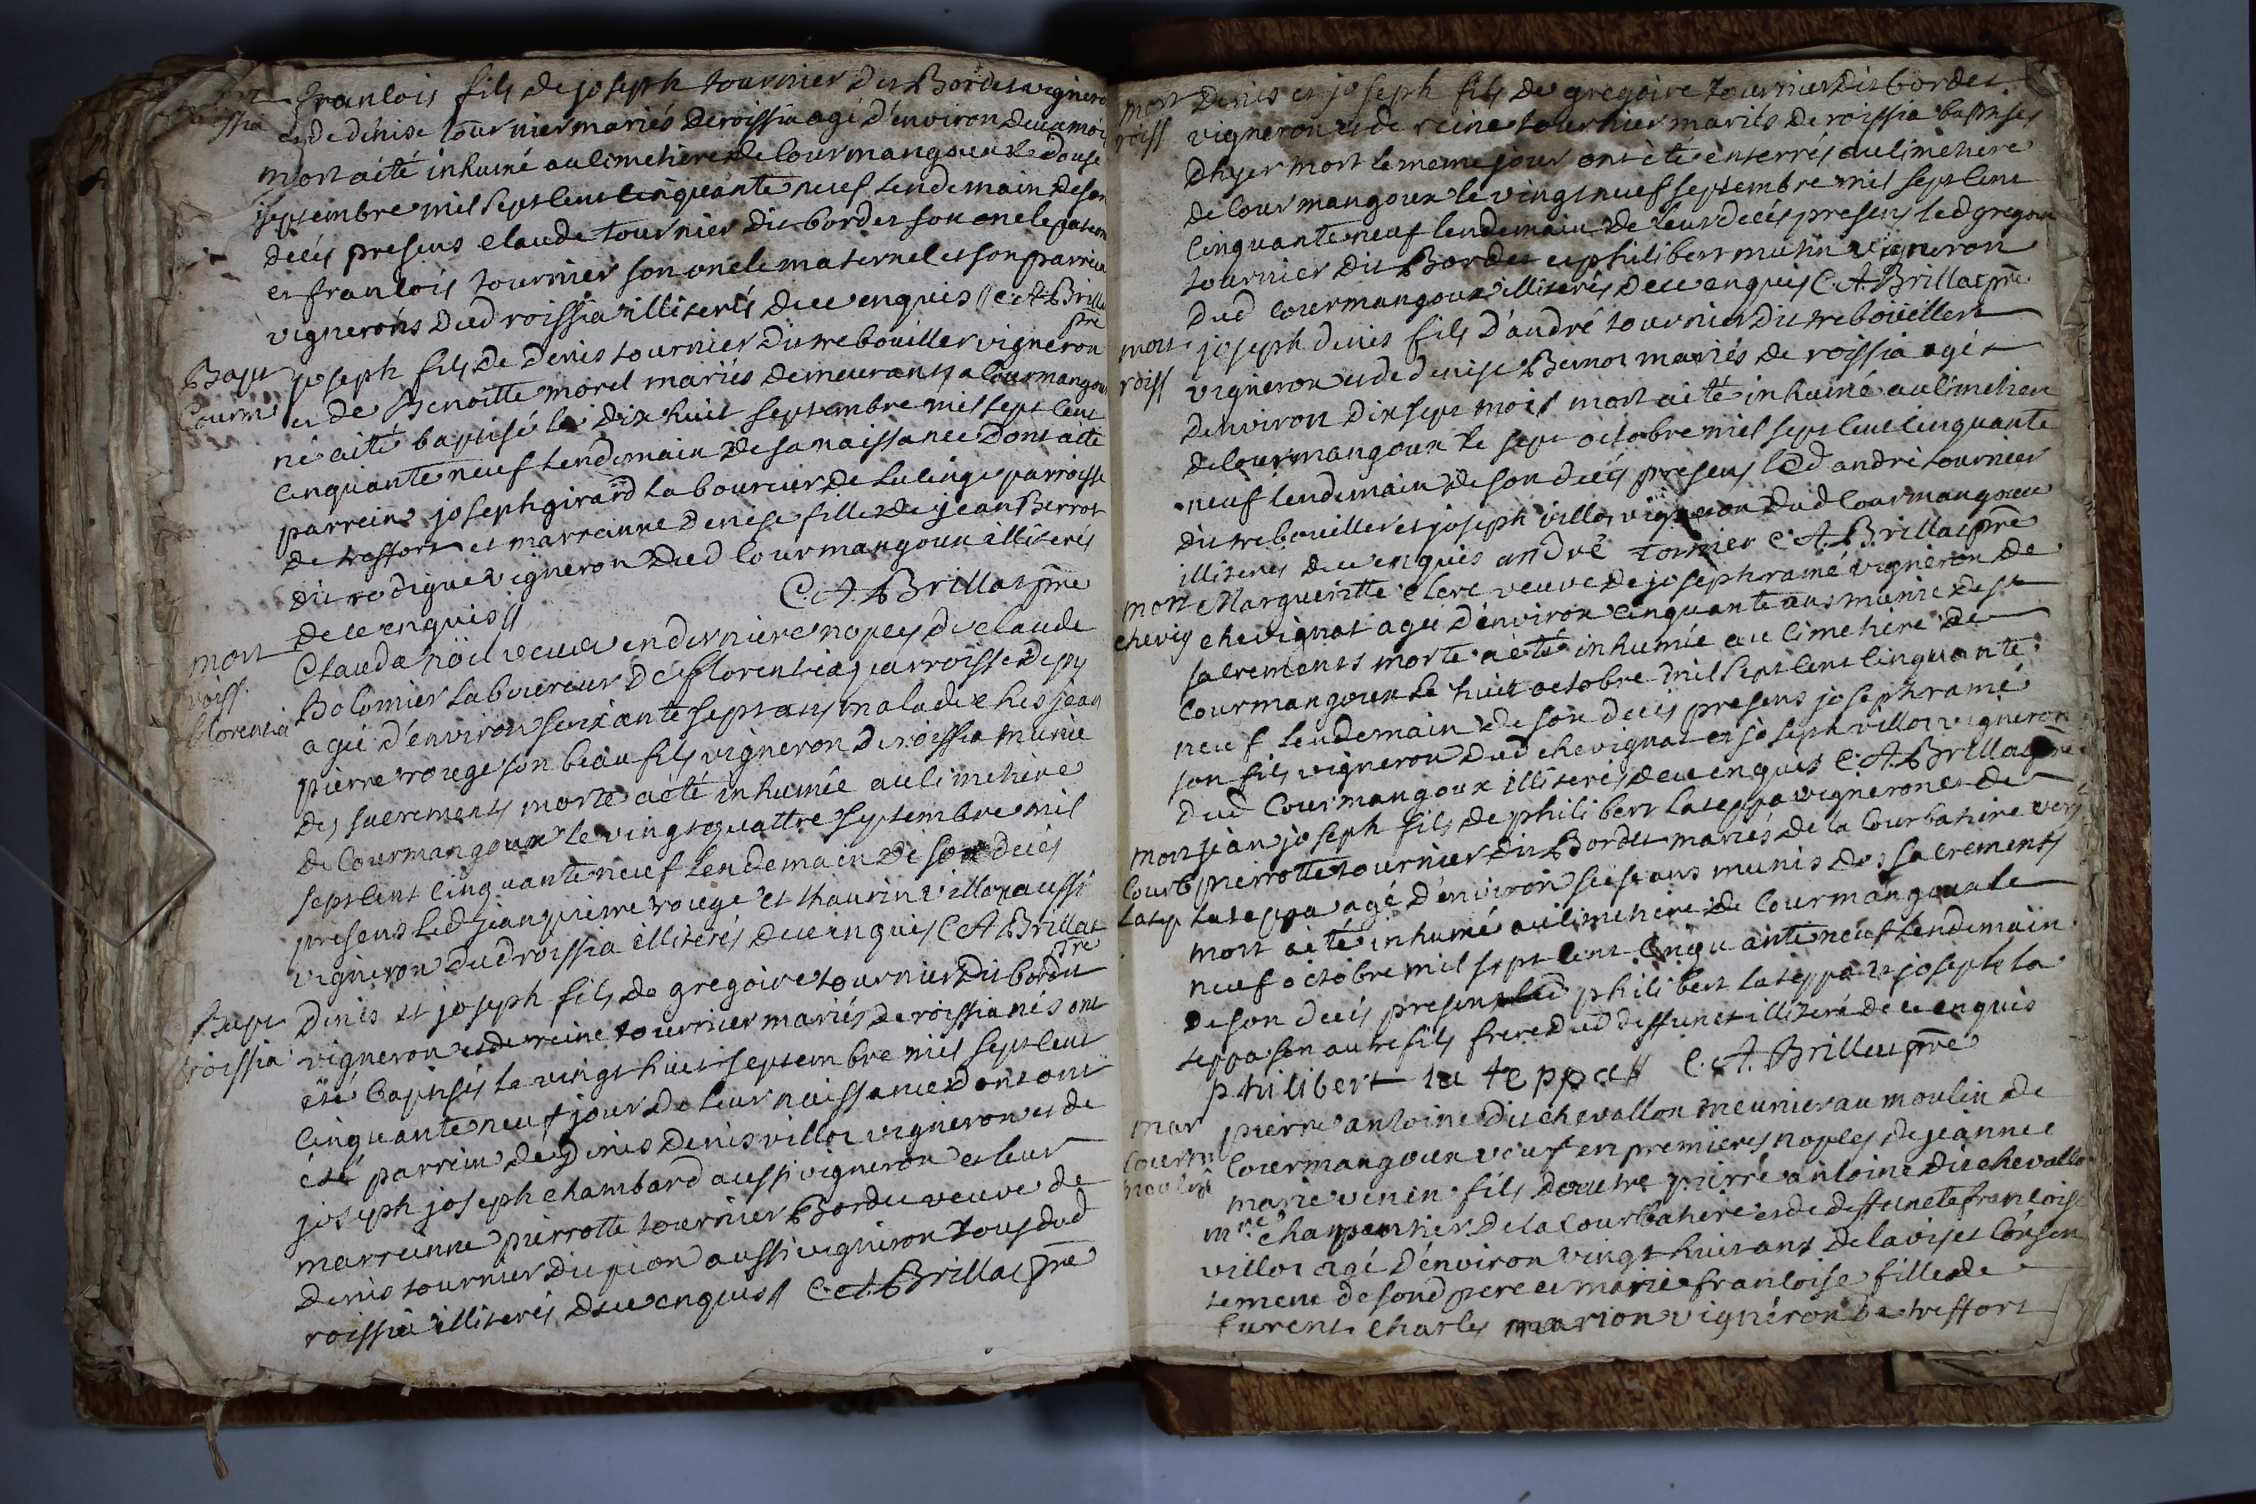 francois fils de joseph tournier dit Bordet vigneron
et de denise tournier mariés de roissia agé d'environ deux mois
mort a été inhumé au cimetiere de Courmangoux le douse
septembre mil sept cent cinquante neuf lendemain de son
decés presens claude tournier dit bordet son oncle patern
et francois tournier son oncle maternel et son parrein
vignerons dud roissia illiterés de ce enquis // C. A. Brillat
pre
Bapt joseph fils de denis tournier dit trebouillet vigneron
Courm et de Benoitte morel mariés demeurants a Courmangoux
né a été baptisé le dix huit septembre mil sept cent
cinquante neuf lendemain de sa naissance dont a été
parrein joseph girard laboureur de Lulinge parroisse
de treffort et marreinne denise fille de jean Berrot
dit rodigue vigneron dud Courmangoux illiterés
de ce enquis // C. A. Brillat pre
mort Claudæ noël veuve en derniere nopces de claude
roiss. Bolomier laboureur de florentia parroisse de
florentia agée d'environ soixante sept ans malade ches jean
pierre rouge son beau fils vigneron de roissia munie
des sacrements morte a été inhumée au cimetiere
de Courmangoux le vingt quattre septembre mil
sept cent cinquante neuf lendemain de son decés
presens led jean pierre rouge et thaurin villot aussi
vigneron dud roissia illiterés de ce enquis C. A. Brillat
pre
Bapt Denis et joseph fils de gregoire tournier dit bordet
roissia vigneron et de reine tournier mariés de roissia nés ont
été baptisés le vingt huit septembre mil sept cent
cinquante neuf jour de leur naissance dont ont
été parrein de denis denis villot vigneron et de
joseph joseph chambard aussi vigneron et leur
marreinne pierrotte tournier Bordet veuve de
denis tournier dit pion aussi vigneron tous dud
roissia illiterés de ce enquis // C. A. Brillat pre
mort Denis et joseph fils de gregoire tournier dit bordet
roiss vigneron et de reine tournier mariés de roissia baptisés
d'hyer mort le meme jour ont été enterrés au cimetiere
de Courmangoux le vingt neuf septembre mil sept cent
cinquante neuf lendemain de leur decés presens led gregoire
tournier dit Bordet et philibert vigneron
dud Courmangoux illiterés de ce enquis C. A. Brillat pre
mort joseph denis fils d'andré tournier dit trebouillet
roiss vigneron et de denise Bernot mariés de roissia agé
denviron dix sept mois mort a été inhumé au cimetiere
de Courmangoux le sept octobre mil sept cent cinquante
neuf lendemain de son decés presens led andré tournier
dit trebouillet et joseph villot vigneron dud Courmangoux
illiterés de ce enquis andré tornier C. A. Brillat pre
mort Margueritte clerc veuve de joseph ramé vigneron de
chevig chevignat agée d'environ cinquante ans munie des
sacrements morte a été inhumée au cimetiere de
Courmangoux le huit octobre mil sept cent cinquante
neuf lendemain de son decés presens joseph ramé
son fils vigneron dud chevignat et joseph villot vigneron
dud Courmangoux illiterés de ce enquis C. A. Brillat pre
mort jean joseph fils de philibert lateppa vigneron et de
Courb pierrotte tournier dit Bordet mariés de la Courbatiere vers
latep lateppa agé d'environ seise ans munis des sacrements
mort a été inhumé au cimetiere de Courmangoux le
neuf octobre mil sept cent cinquante neuf lendemain
de son decés presens led philibert lateppa et joseph la
teppa son autre fils frere dud deffunct illiteré de ce enquis
philibert la teppa // C. A. Brillat pre
mar pierre antoine dit chevallon meunier au moulin de
Courm Courmangoux veuf en premieres nopces de jeanne
moulin marie venin fils d'autre pierre antoine dit chevallon
mre charpentier de la Courbatiere et de deffuncte francoise
villot agé d'environ vingt huit ans de lavis et Consen
tement de sond pere et marie francoise fille de
Lurent charles marion vigneron de treffort